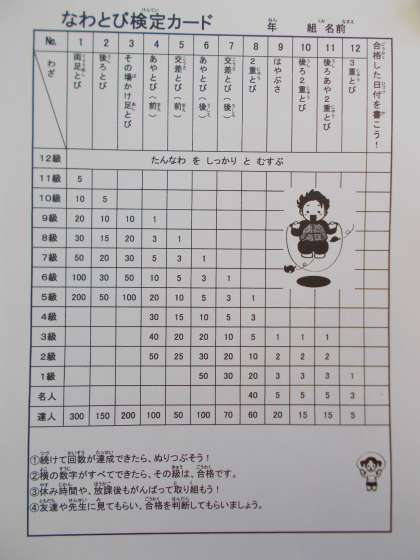 なわとび検定カード
年 組 名前
No. 1 2 3 4 5 6 7 8 9 10 11 12
わざ
両足とび
後ろとび
その場かけ足とび
あやとび(前)
交差とび(前)
あやとび(後)
交差とび(後)
2重とび
はやぶさ
後ろ2重とび
後ろあや2重とび
3重とび
合格した日付を書こう!
12級 たんなわ を しっかり と むすぶ
11級 5
10級 10 5
9級 20 10 10 1
8級 30 15 20 3 1
7級 50 20 30 5 3 1
6級 100 30 50 10 5 3 1
5級 200 50 100 20 10 5 3 1
4級 30 15 10 5 3
3級 40 20 20 10 5 1 1 1
2級 50 25 30 20 10 2 2 2
1級 50 30 20 3 3 3 1
名人 40 5 5 5 3
達人 300 150 200 100 50 100 70 60 20 15 15 5
①続けて回数が達成できたら、ぬりつぶそう!
②横の数字がすべてできたら、その級は、合格です。
③休み時間や、放課後もがんばって取り組もう!
④友達や先生に見てもらい、合格を判断してもらいましょう。